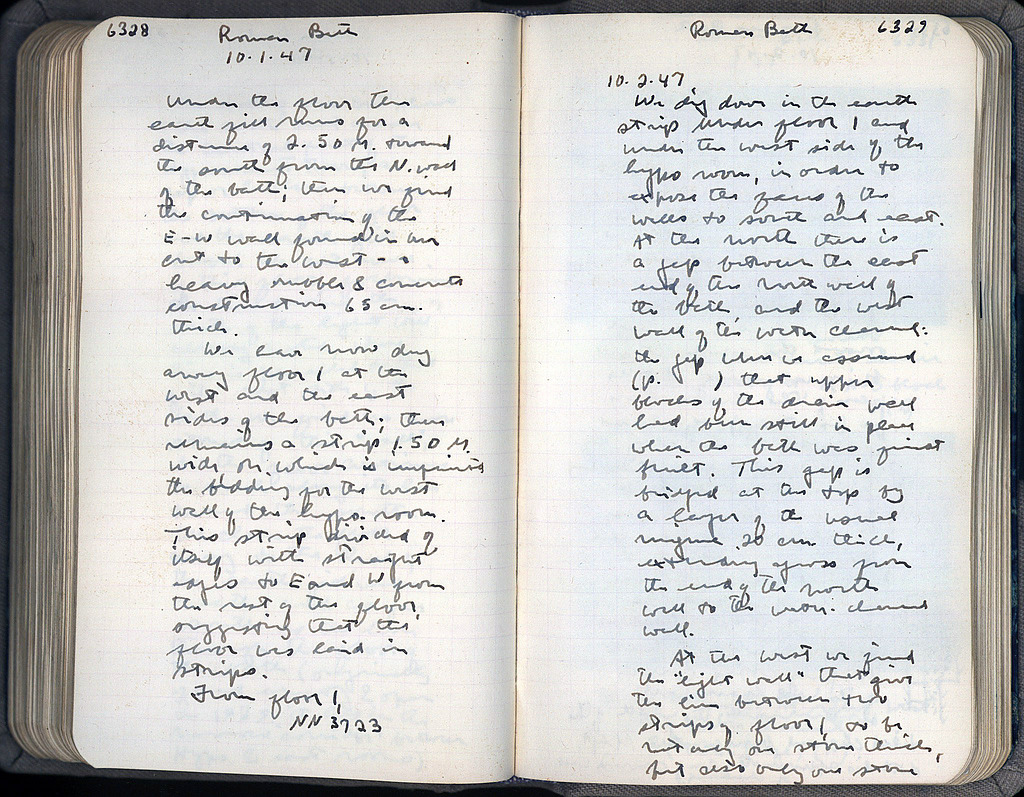 6328
Roman Bath
10.1.47
Under the floor the
earth fill runs for a
distance of 2.50 M. toward
the south from the N. wall
of the bath; then we find
the continuation of the
E-W wall found in our
cut to the west - a
heavy rubble & concrete
construction 65 cm.
thick.
We have now dug
away floor 1 at the
west and the east
sides of the bath; there
remains a strip 1.50 M.
wide on which is imprinted
the bedding for the west
wall of the hypo. room.
This strip divided of
itself with straight
edges to E and W from
the rest of the floor,
suggesting that the
floor was laid in
strips.
From floor 1,
NN 3723
Roman Bath
6329
10.2.47
We dig down in the earth
strip under floor 1 and
under the west side of the
hypo room, in order to
expose the faces of the
walls to south and east.
At the north there is
a gap between the east
end of the north wall of
the bath, and the west
wall of the water channel:
the gap where we assumed
(p.    ) that upper
blocks of the drain wall
had been still in place
when the bath was first
built. This gap is
bridged at the top by
a layer of the usual
20 cm thick,
extending across from
the end of the north
wall to the water channel
wall.
At the west we find
the "light wall" that give
the line between two
strips of floor 1, to be
not only one stone thick,
but also only one stone